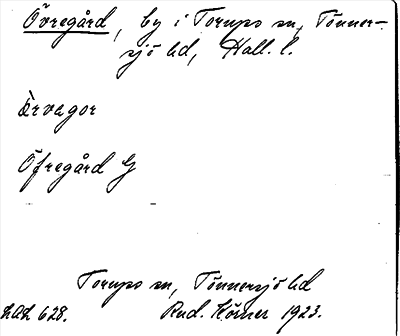 Övregård, by i Torups sn, Tönner-
sjö hd, Hall. l.
Öfregård G
Torups sn, Tönnersjö hd
628. Rud. Körner 1923.